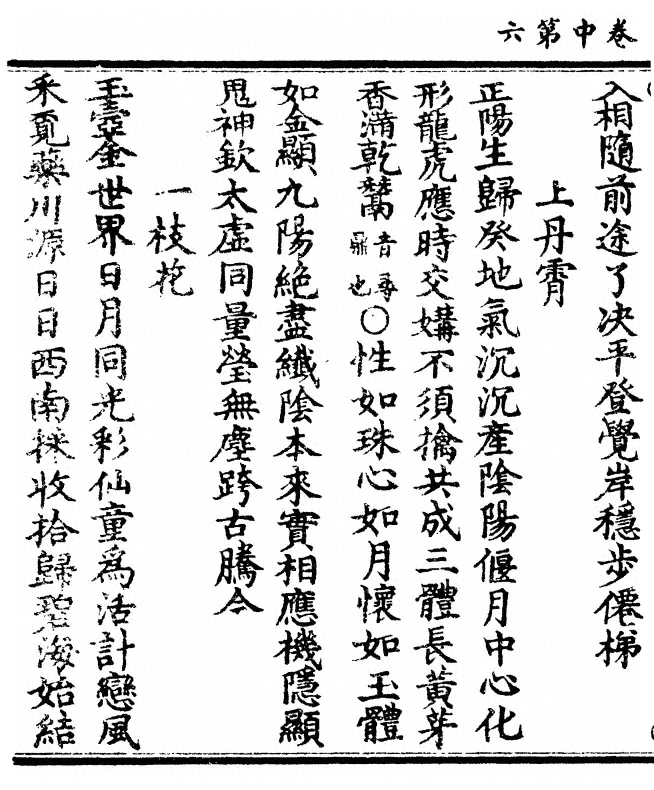 卷中第六
入相隨前途了决平登覺岸穩步僊梯
上丹霄
正陽生歸癸地氣沉沉產陰陽偃月中心化
形龍虎應時交媾不須擒共成三體長黃芽
香滿乾鬵音尋鼎也○性如珠心如月懷如玉體
如金顯九陽絕盡纖陰本來實相應機隱顯
鬼神欽太虛同量瑩無塵跨古騰今
一枝花
玉壺金世界日月同光彩仙童為活計戀風
釆覓藥川源日日西南採收拾歸碧海始結